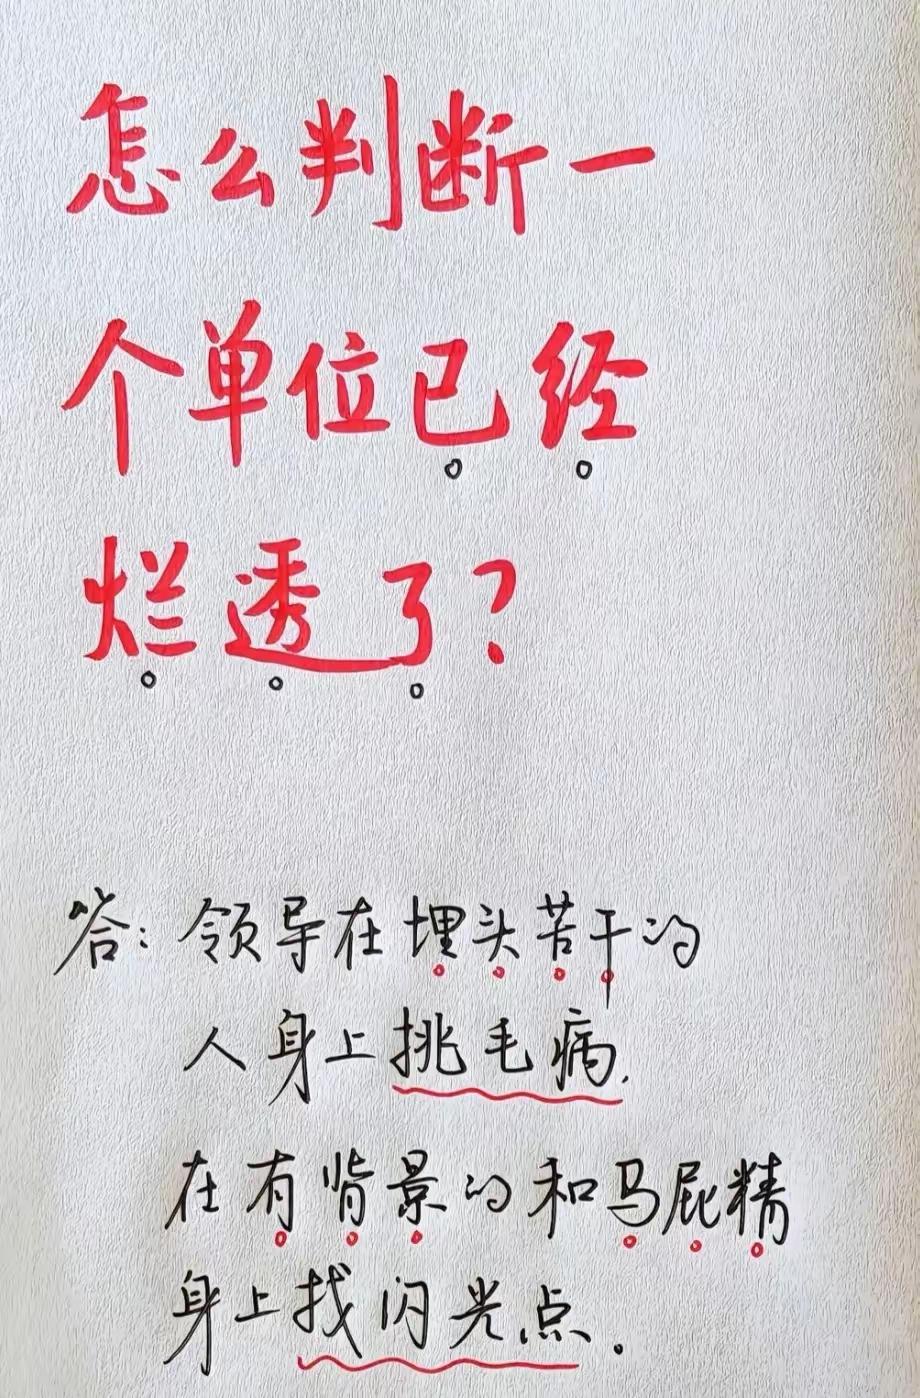 怎么判断一
个单位已经
烂透了？
答：领导在埋头苦干的
人身上挑毛病.
在有背景的和马屁精
身上找闪光点.